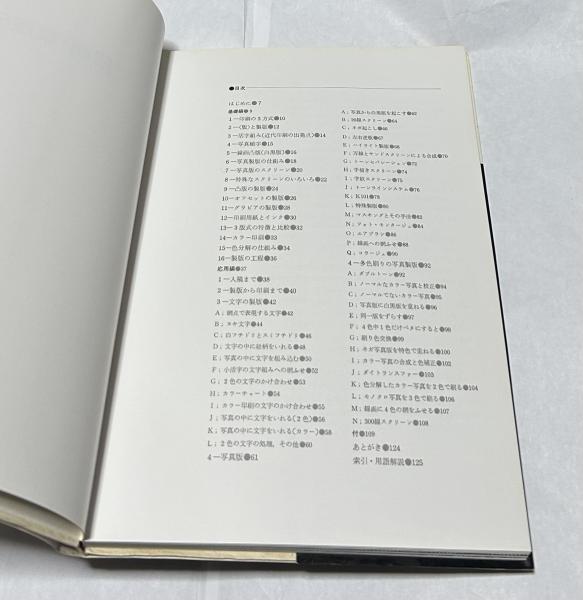 ●目次
はじめに●7
基礎編●9
1―印刷の3方式●10
2―〈版〉と製版●12
3―活字組み(近代印刷の出発点)●14
4―写真植字●15
5―線画凸版(白黒版)●16
6―写真製版の仕組み●18
7―写真版のスクリーン●20
8―特殊なスクリーンのいろいろ●22
9―凸版の製版●24
10―オフセットの製版●26
11―グラビアの製版●28
12―印刷用紙とインク●30
13―3版式の特徴と比較●32
14―カラー印刷●33
15―色分解の仕組み●34
16―製版の工程●36
応用編●37
1―入稿まで●38
2―製版から印刷まで●40
3―文字の製版●42
A；網点で表現する文字●42
B；ヌキ文字●44
C；白フチドリとスミフチドリ●46
D；文字の中に絵柄をいれる●48
E；写真の中に文字を組み込む●50
F；小活字の文字組みへの網ふせ●52
G；2色の文字のかけ合わせ●53
H；カラーチャート●54
I；カラー印刷の文字のかけ合わせ●55
J；写真の中に文字をいれる(2色)●56
K；写真の中に文字をいれる(カラー)●58
L；2色の文字の処理，その他●60
4―写真版●61
A；写真からの黒版を起こす●62
B；10線スクリーン●64
C；ネガ起こし●66
D；左右逆版●67
E；ハイライト製版●68
F；万線とサンドスクリーンによる合成●70
G；トーンセパレーション●72
H；手描きスクリーン●74
I；字紋スクリーン●75
J；トーンラインシステム●76
K；K101●78
L；特殊製版●80
M；マスキングとその手法●82
N；フォト・モンタージュ●84
O；エアブラシ●86
P；線画への網ふせ●88
Q；コラージュ●90
4―多色刷りの写真製版●92
A；ダブルトーン●92
B；ノーマルなカラー写真と校正●94
C；ノーマルでないカラー写真●95
D；写真版に白黒版を重ねる●96
E；同一版をずらす●97
F；4色中1色だけベタにすると●98
G；刷り色交換●99
H；ネガ写真版を特色で重ねる●100
I；カラー写真の合成と色補正●102
J；ダイトランスファー●103
K；色分解したカラー写真を2色で刷る●104
L；モノクロ写真を3色で刷る●106
M；線画に4色の網をふせる●107
N；300線スクリーン●108
付●109
あとがき●124
索引・用語解説●125